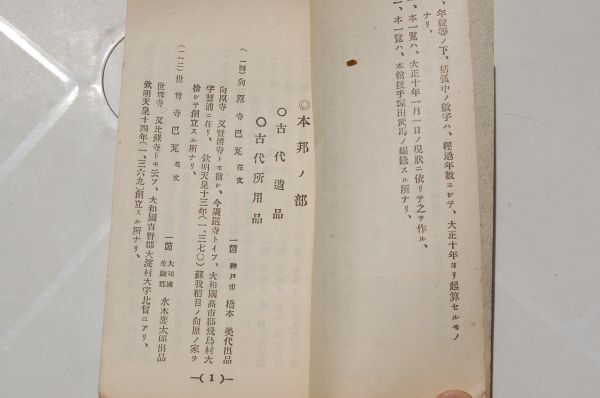 一、年號等ノ下、括弧中ノ數字ハ、經過年數ニシテ、大正十年ヨリ起算セルモノ
ナリ、
一、本一覽ハ、大正十年一月一日ノ現狀ニ依リテ之ヲ作ル、
一、本一覽ハ、本館技手塚田武馬ノ編錄スル所ナリ、
◎本邦ノ部
○古代遺品
○古代所用品
向原寺巴瓦 花文
一箇 神戸市 橋本美代出品
向原寺 又豐浦寺トモ稱シ、今廣嚴寺トイフ、大和國高市郡飛鳥村大
字豐浦ニ在リ、欽明天皇十三年(一、三七〇)蘇我稻目ノ向原ノ家ヲ
捨シテ創立スル所ナリ、
世尊寺巴瓦 花文
一箇 大和國生駒郡 水木要太郎出品
世尊寺 又比蘇寺トモ云フ、大和國吉野郡大淀村大字比曾ニアリ、
欽明天皇十四年(一、三六九)創立スル所ナリ、
―(1)―